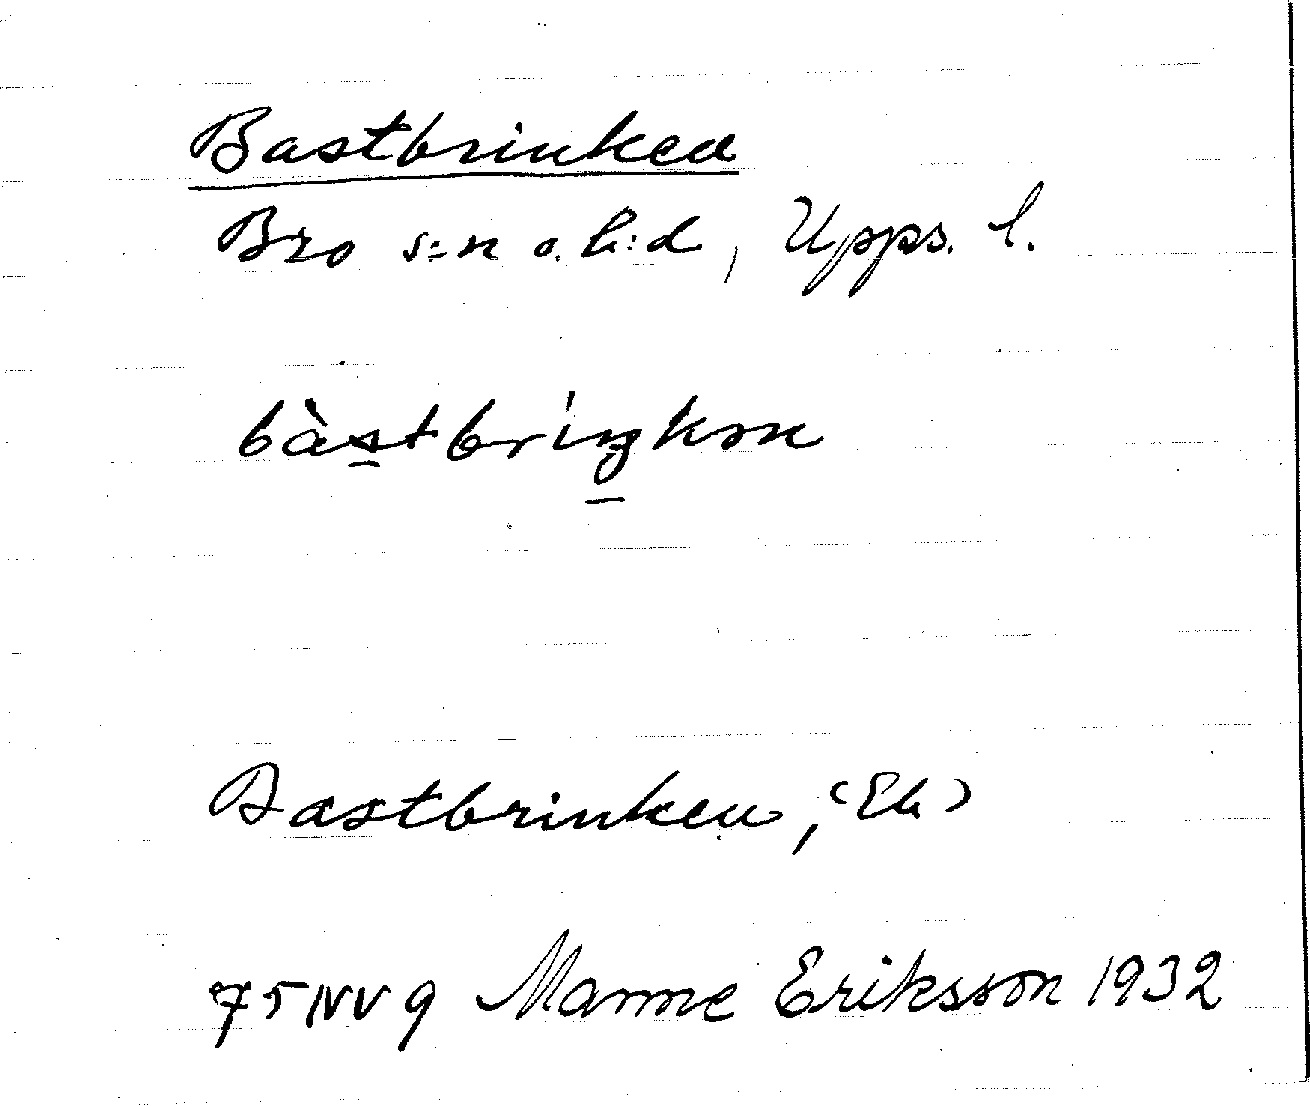 Bastbrinken
Bro s:n o. h:d, Upps. l.
bàstbríŋkən
Bastbrinken, (Ek)
75 NV 9 Manne Eriksson 1932